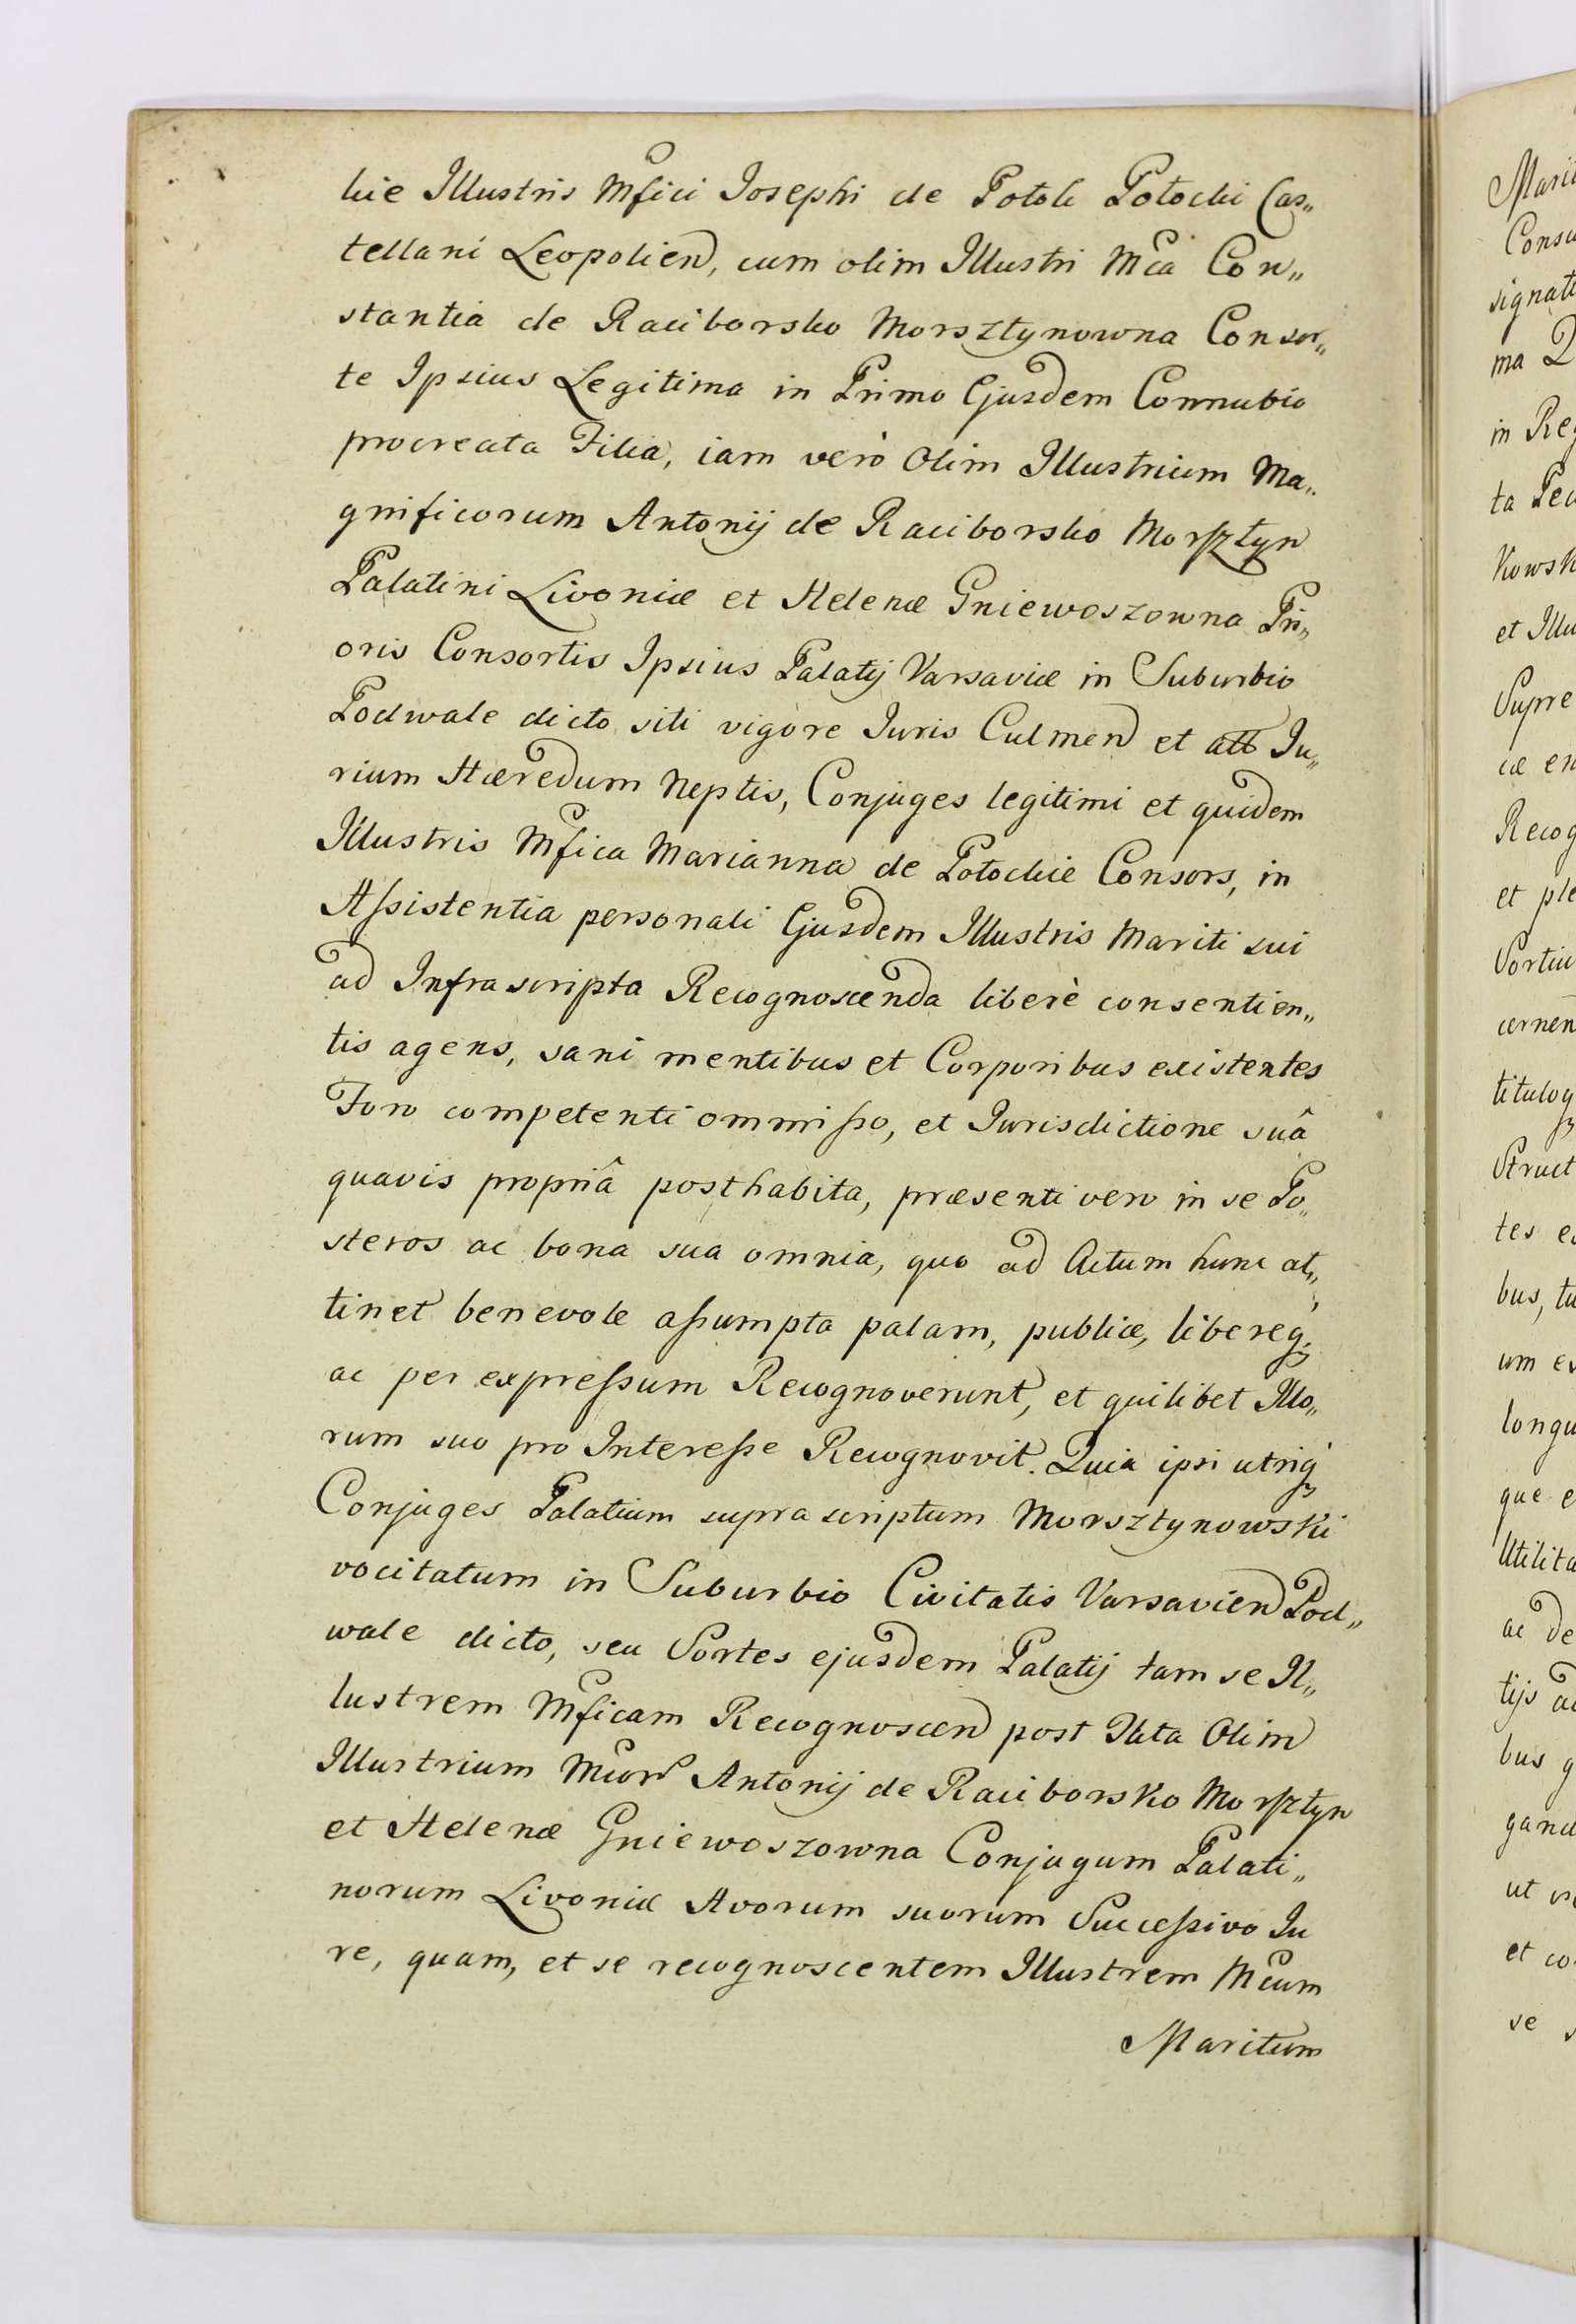 kie Illustris Mfici Josephi de Potok Potocki Cas„
tellani Leopolien̄, cum olim Illustri Mca Con„
stantia de Raciborsko Morsztynowna Consor„
te Ipsius Legitima in Primo Ejusdem Connubio
procreata Filia, iam verò Olim Illustrium Ma„
gnificorum Antonij de Raciborsko Morsztyn
Palatini Livoniæ et Helenæ Gniewoszowna Pri„
oris Consortis Ipsius Palatij Varsaviæ in Suburbio
Podwale dicto siti vigore Juris Culmen̄ et Ju„
rium Hæredum Neptis, Conjuges legitimi et quidem
Illustris Mfica Marianna de Potockie Consors, in
Assistentia personali Ejusdem Illustris Mariti sui
ad Infrascripta Recognoscenda liberè consentien„
tis agens, sani mentibus et Corporibus existentes
Foro competenti ommisso, et Jurisdictione suâ
quavis propriâ posthabita, præsenti vero in se Po„
steros ac bona sua omnia, quo ad Actum hunc at„
tinet benevole assumpta palam, publice, libereq,
ac per expressum Recognoverunt, et quilibet Illo„
rum suo pro Interesse Recognovit. Quia ipsi utriq
Conjuges Palatium supra scriptum Morsztynowski
vocitatum in Suburbio Civitatis Varsavien̄ Pod„
wale dicto, seu Sortes ejusdem Palatij tam se Il„
lustrem Mficam Recognoscen̄ post Fata Olim
Illustrium Mcor Antonij de Raciborsko Morsztyn
et Helenæ Gniewoszowna Conjugum Palati„
norum Livoniæ Avorum suorum Successivo Ju
re, quam, et se recognoscentem Illustrem Mcum
Maritum